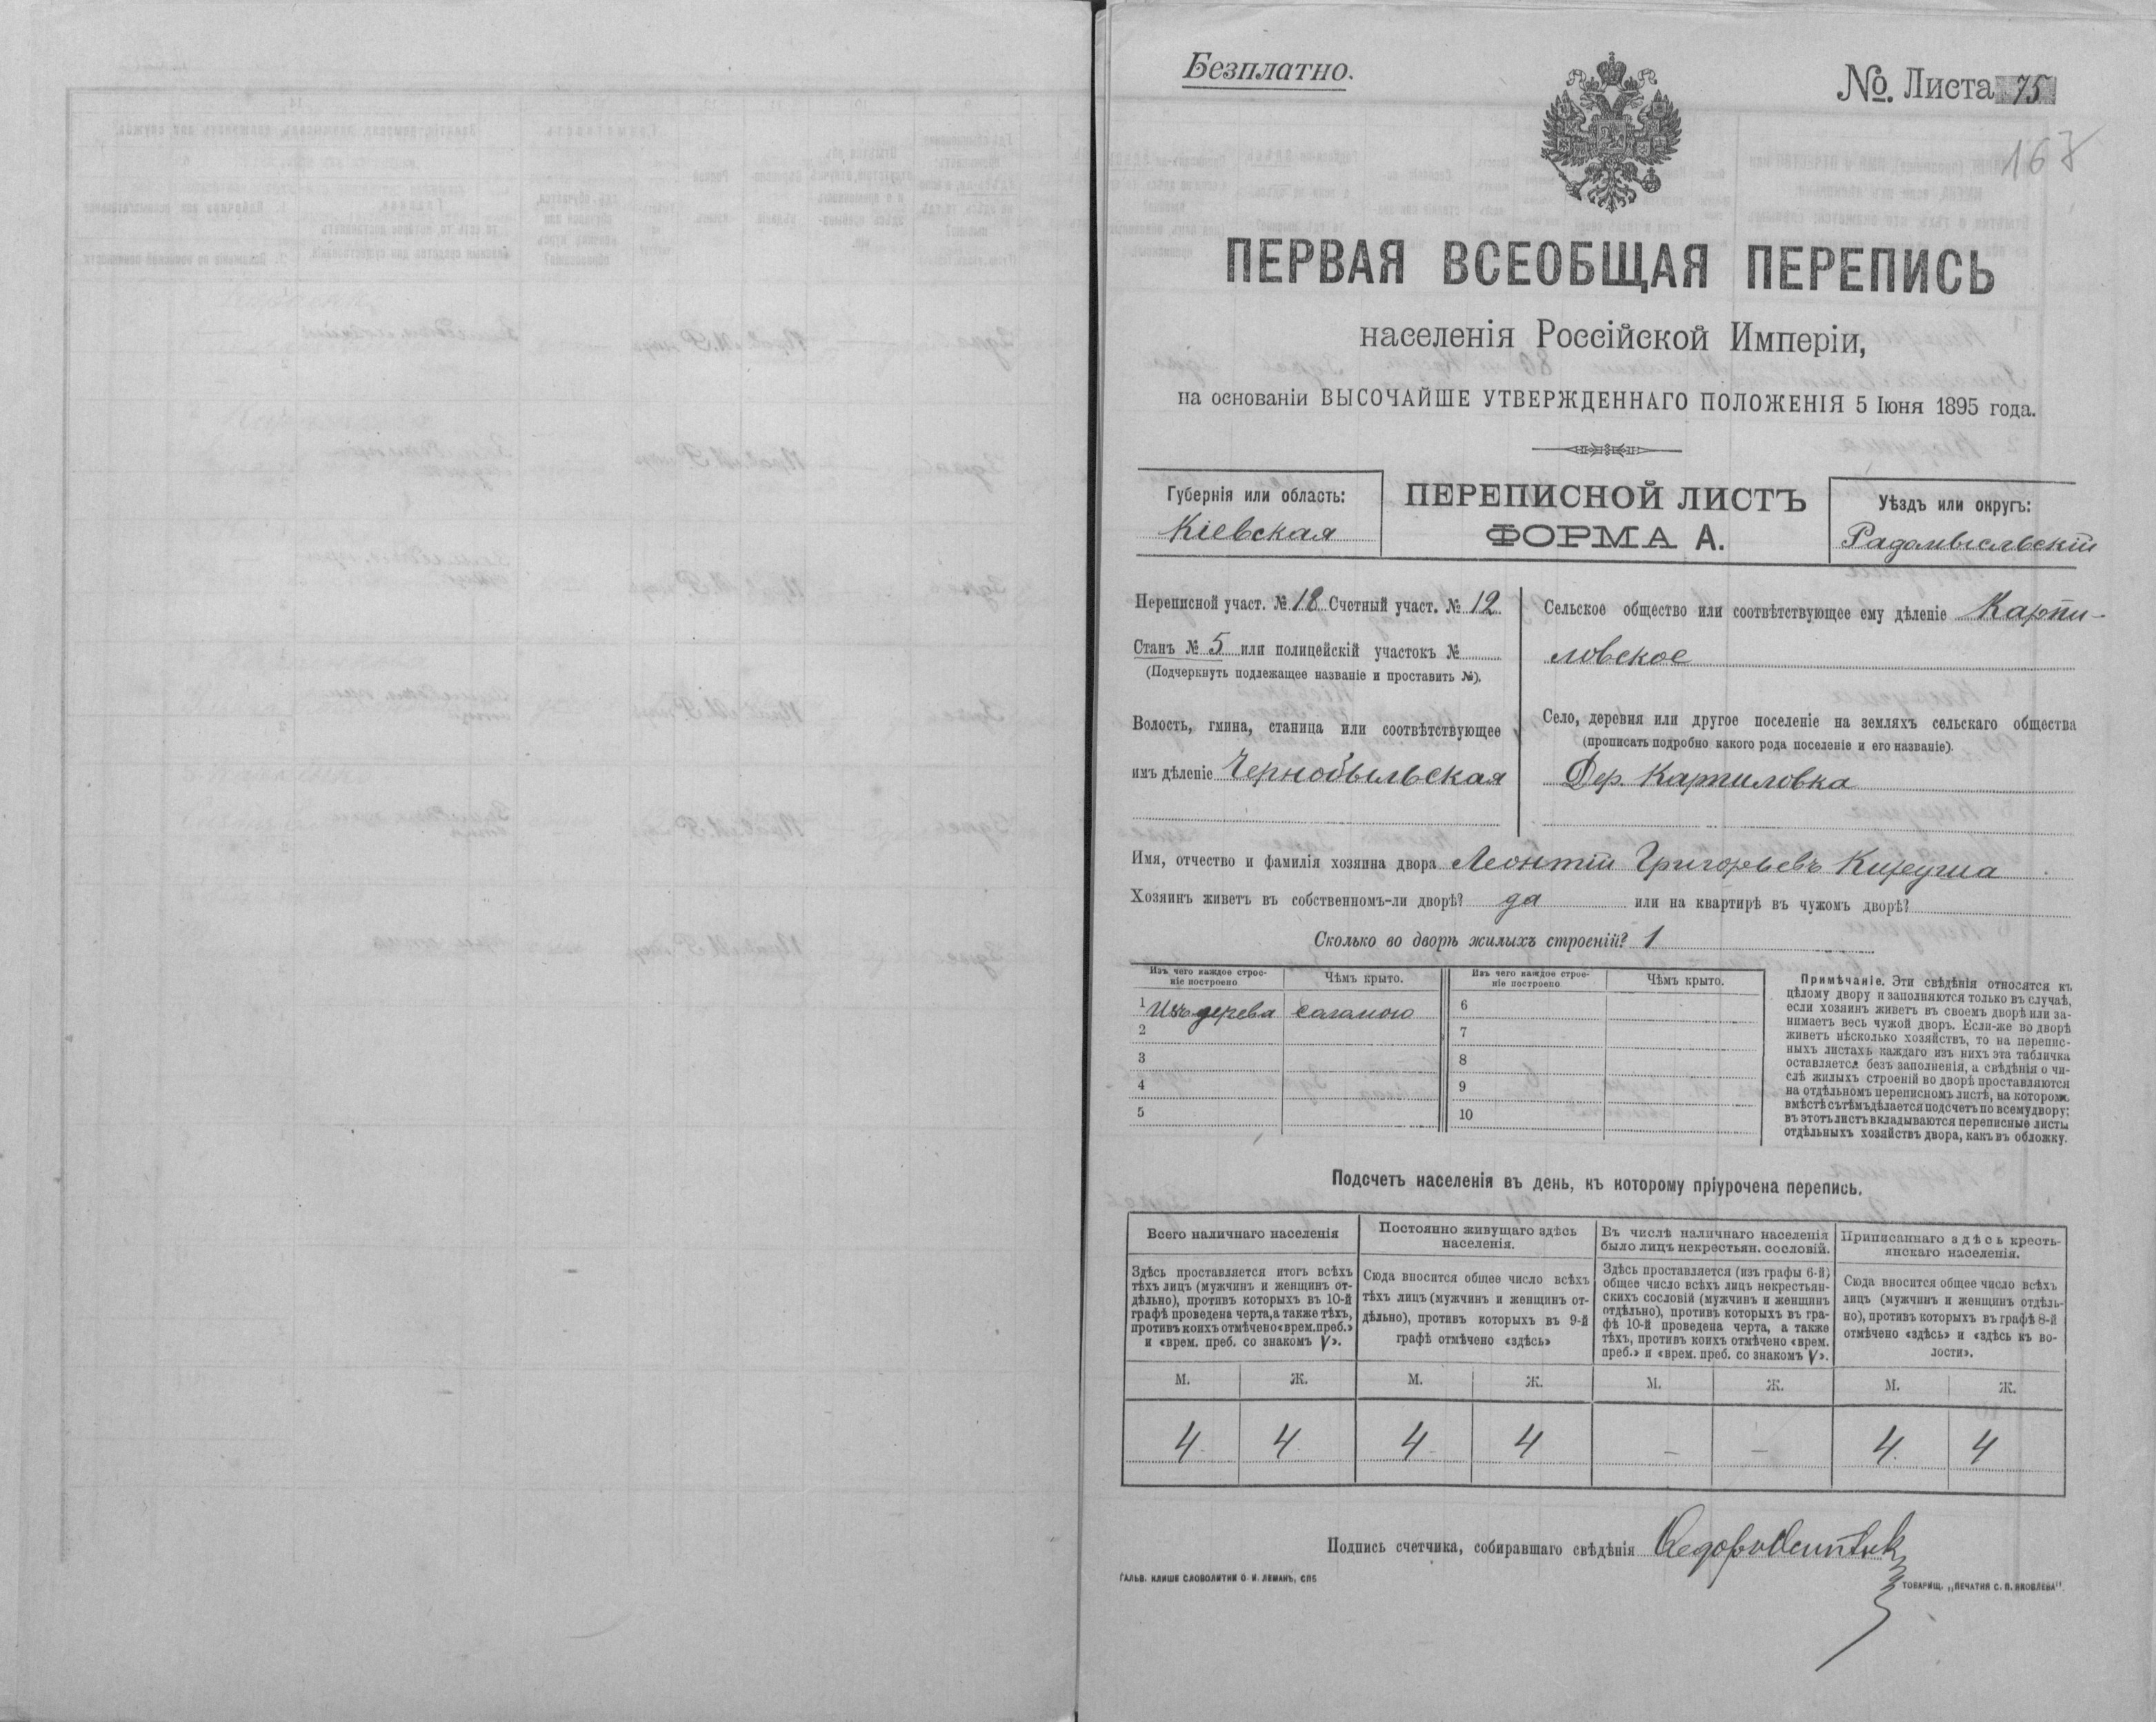 Безплатно.
№. Листа 75
167
ПЕРВАЯ ВСЕОБЩАЯ ПЕРЕПИСЬ
населенія Россійской Имперіи,
на основаніи ВЫСОЧАЙШЕ УТВЕРЖДЕННАГО ПОЛОЖЕНІЯ 5 Іюня 1895 года.
Губернія или область:
Кіевская
ПЕРЕПИСНОЙ ЛИСТЪ
ФОРМА А.
Уѣздъ или округъ:
Радомысльскій
Переписной участ. № 18 Счетный участ. № 12
Станъ № 5 или полицейскій участокъ №
(Подчеркнуть подлежащее названіе и проставить №).
Волость, гмина, станица или соотвѣтствующее
имъ дѣленіе Чернобыльская
Сельское общество или соотвѣтствующее ему дѣленіе Карпи-
ловское
Село, деревня или другое поселеніе на земляхъ сельскаго общества
(прописать подробно какого рода поселеніе и его названіе).
Дер. Карпиловка
Имя, отчество и фамилія хозяина двора Леонтій Григорьевъ
Хозяинъ живетъ въ собственномъ-ли дворѣ? да или на квартирѣ въ чужомъ дворѣ?
Сколько во дворѣ жилыхъ строеній? 1
Изъ чего каждое строе-
ніе построено
Чѣмъ крыто.
Изъ чего каждое строе-
ніе построено
Чѣмъ крыто.
1 Изъ дерева соломою
2
3
4
5
6
7
8
9
10
Примѣчаніе. Эти свѣдѣнія относятся къ
цѣлому двору и заполняются только въ случаѣ,
если хозяинъ живетъ въ своемъ дворѣ или за-
нимаетъ весь чужой дворъ. Если-же во дворѣ
живетъ нѣсколько хозяйствъ, то на перепис-
ныхъ листахъ каждаго изъ нихъ эта табличка
оставляется безъ заполненія, а свѣдѣнія о чи-
слѣ жилыхъ строеній во дворѣ проставляются
на отдѣльномъ переписномъ листѣ, на которомъ
вмѣстѣ съ тѣмъ дѣлается подсчетъ по всему двору;
въ этотъ листъ вкладываются переписные листы
отдѣльныхъ хозяйствъ двора, какъ въ обложку.
Подсчетъ населенія въ день, къ которому пріурочена перепись.
Всего наличнаго населенія
Здѣсь проставляется итогъ всѣхъ
тѣхъ лицъ (мужчинъ и женщинъ от-
дѣльно), противъ которыхъ въ 10-й
графѣ проведена черта, а также тѣхъ,
противъ коихъ отмѣчено «врем. преб.»
и «врем. преб. со знакомъ V».
Постоянно живущаго здѣсь
населенія.
Сюда вносится общее число всѣхъ
тѣхъ лицъ (мужчинъ и женщинъ от-
дѣльно), противъ которыхъ въ 9-й
графѣ отмѣчено «здѣсь»
Въ числѣ наличнаго населенія
было лицъ некрестьян. сословій.
Здѣсь проставляется (изъ графы 6-й)
общее число всѣхъ лицъ некрестьян-
скихъ сословій (мужчинъ и женщинъ
отдѣльно), противъ которыхъ въ гра-
фѣ 10-й проведена черта, а также
тѣхъ, противъ коихъ отмѣчено «врем.
преб.» и «врем. преб. со знакомъ V».
Приписаннаго здѣсь кресть-
янскаго населенія.
Сюда вносится общее число всѣхъ
лицъ (мужчинъ и женщинъ отдѣль-
но), противъ которыхъ въ графѣ 8-й
отмѣчено «здѣсь» и «здѣсь къ во-
лости».
М. Ж. М. Ж. М. Ж. М. Ж.
4 4 4 4 – – 4 4
Подпись счетчика, собиравшаго свѣдѣнія
ГАЛЬВ. КЛИШЕ СЛОВОЛИТНИ О. И. ЛЕМАНЪ, СПБ
ТОВАРИЩ. „ПЕЧАТНЯ С. П. ЯКОВЛЕВА".